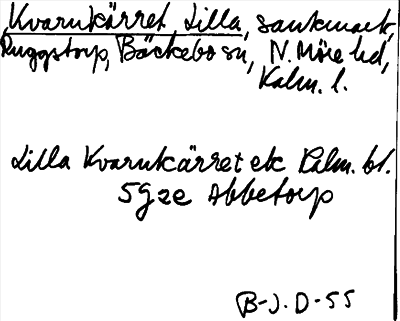 Kvarnkärret, Lilla, sankmark,
Ruggstorp, Bäckebo sn, N. Möre hd,
Kalm. l.
Lilla Kvarnkärret ek Kalm. bl.
5 G 2e Abbetorp
B-J. D-55